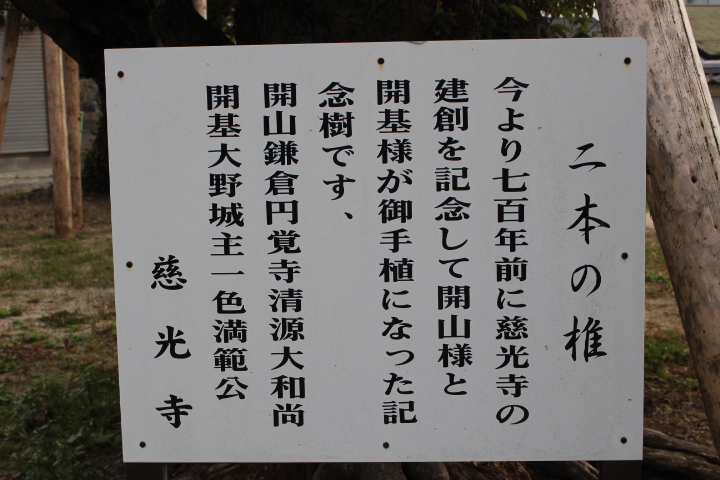 二本の椎
今より七百年前に慈光寺の
建創を記念して開山様と
開基様が御手植になった記
念樹です、
開山鎌倉円覚寺清源大和尚
開基大野城主一色満範公
慈光寺